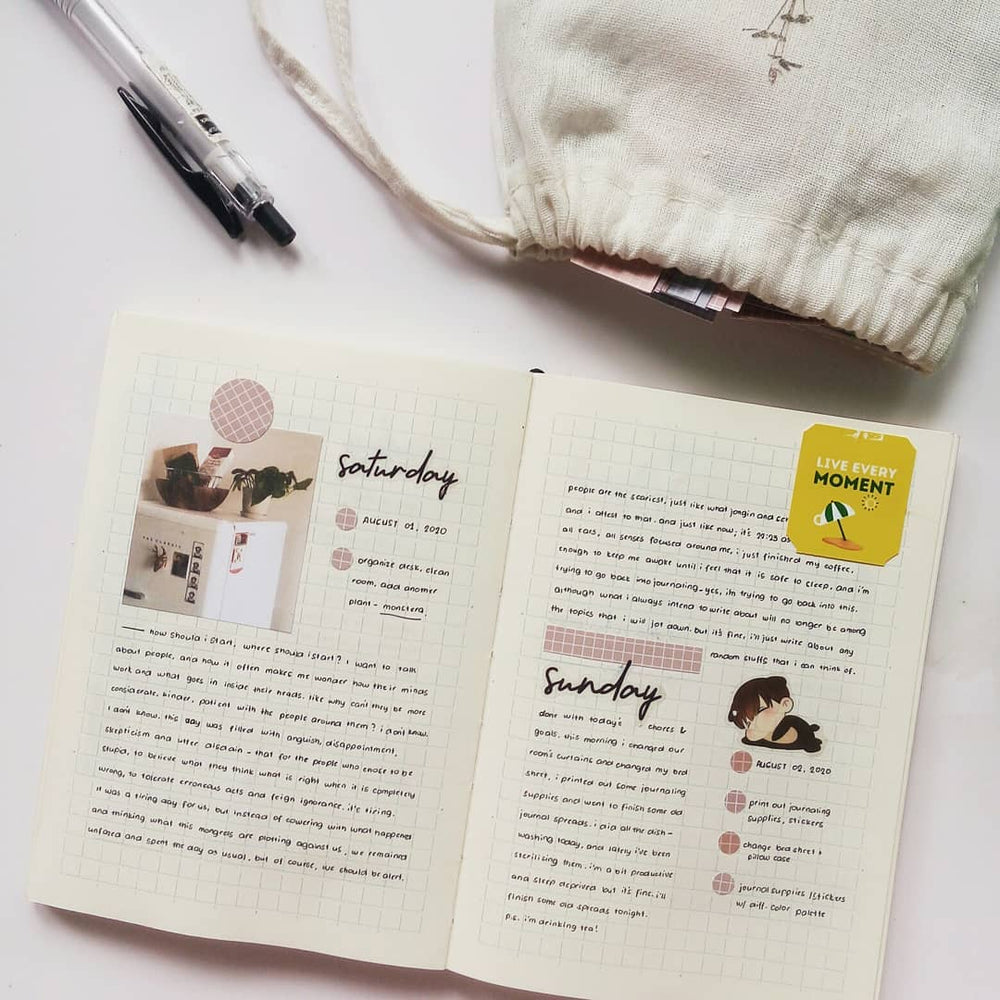 saturday
AUGUST 01, 2020
organize desk, clean
room, add another
plant - monstera!
— how should i start, where should i start? i want to talk
about people, and how it often makes me wonder how their minds
work and what goes in inside their heads. like why can't they be more
considerate, kinder, patient with the people around them? i don't know.
i don't know. this day was filled with anguish, disappointment,
skepticism and utter disdain - that for the people who chose to be
stupid, to believe what they think what is right when it is completely
wrong, to tolerate erroneous acts and feign ignorance. it's tiring.
it was a tiring day for us, but instead of cowering with what happened
and thinking what this mongrels are plotting against us, we remained
unfazed and spent the day as usual, but of course, we should be alert.
people are the scariest, just like what jongin and
and i attest to that. and just like now, it's 22:23
all ears, all senses focused around me, i just finished my coffee,
enough to keep me awake until i feel that it is safe to sleep, and i'm
trying to go back into journaling - yes, i'm trying to go back into this.
although what i always intend to write about will no longer be among
the topics that i will jot down. but it's fine, i'll just write about any
random stuffs that i can think of.
LIVE EVERY
MOMENT
sunday
done with today's chores &
goals. this morning i changed our
room's curtains and changed my bed
sheet, i printed out some journaling
supplies and went to finish some old
journal spreads. i did all the dish-
washing today, and lately i've been
sterilizing them. i'm a bit productive
and sleep deprived but it's fine. i'll
finish some old spreads tonight.
p.s. i'm drinking tea!
AUGUST 02, 2020
print out journaling
supplies, stickers
change bed sheet +
pillow case
journal supplies /stickers
w/ diff. color palette